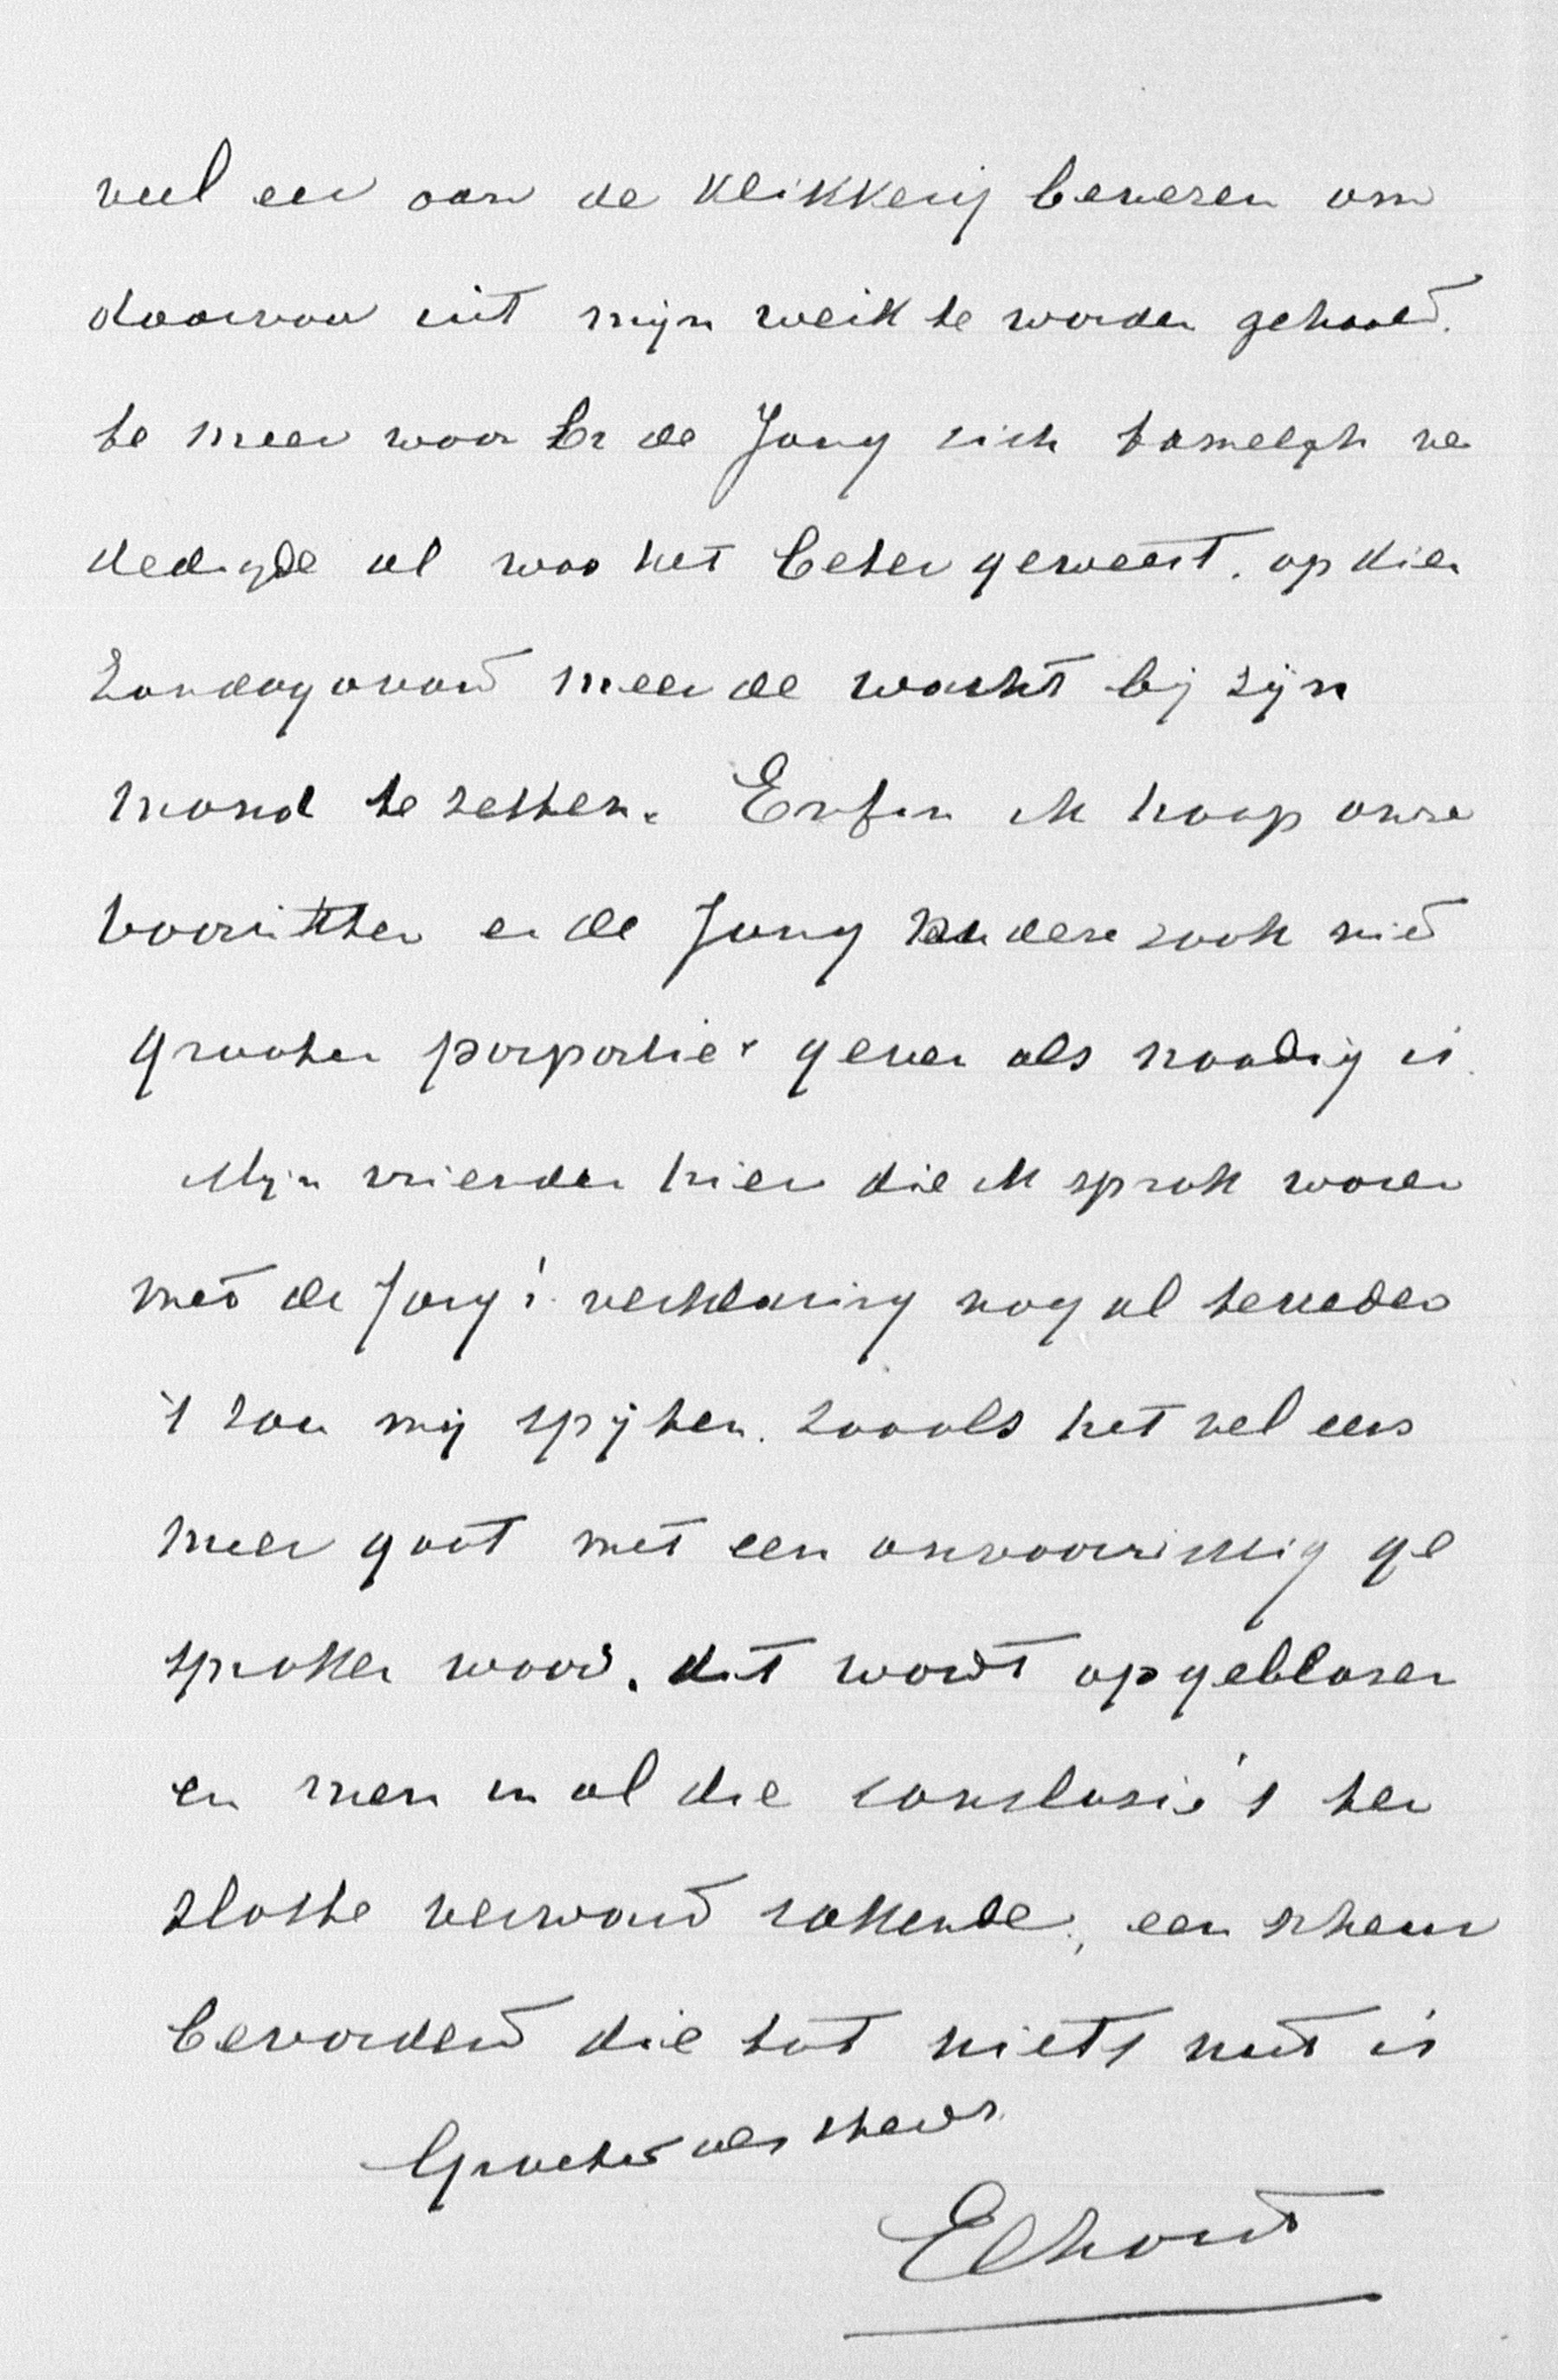 veel eer aan de klikkerij bewezen om
daarvoor uit mijn werk te worden gehaald.
te meer waar Br de Jong zich tamelijk ve
dedigde al was het beter geweest. op dien
Zondagavond meer de wacht bij zijn
mond te zetten. Enfin ik hoop onze
voorzitter en de Jong zaak niet
grooter porportie's geven als noodig is.
Mijn vrienden hier die ik sprak waren
met de Jong's verklaring nog al tevreden
't zou mij spijten. zooals het wel eens
meer gaat met een onvoorzichtig ge
sproken woord. dit wordt opgeblazen
en men in al die conclusie's ten
slotte verward rakende, een scheur
bevorderd die tot niets nut is
Groetend als steeds.
Elhout